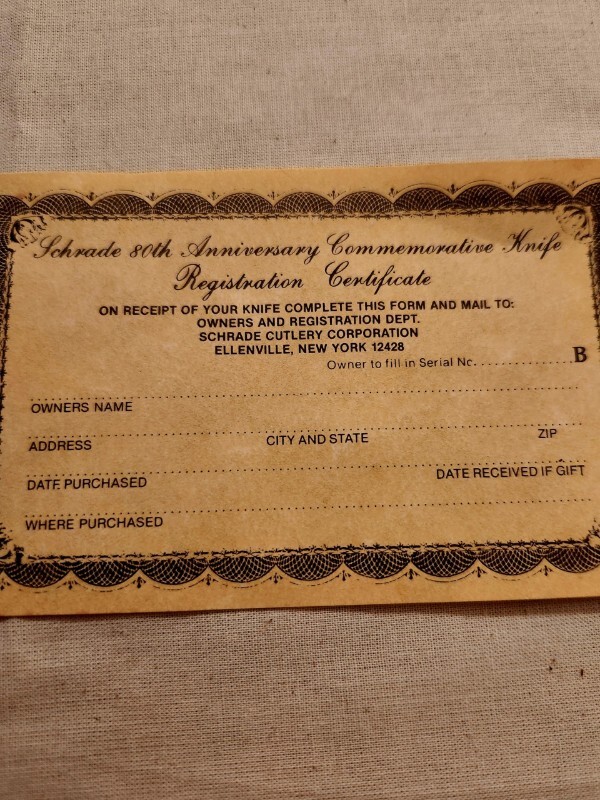 Schrade 80th Anniversary Commemorative Knife
Registration Certificate
ON RECEIPT OF YOUR KNIFE COMPLETE THIS FORM AND MAIL TO:
OWNERS AND REGISTRATION DEPT.
SCHRADE CUTLERY CORPORATION
ELLENVILLE, NEW YORK 12428
Owner to fill in Serial No. ..................... B
OWNERS NAME
ADDRESS CITY AND STATE ZIP
DATE PURCHASED DATE RECEIVED IF GIFT
WHERE PURCHASED